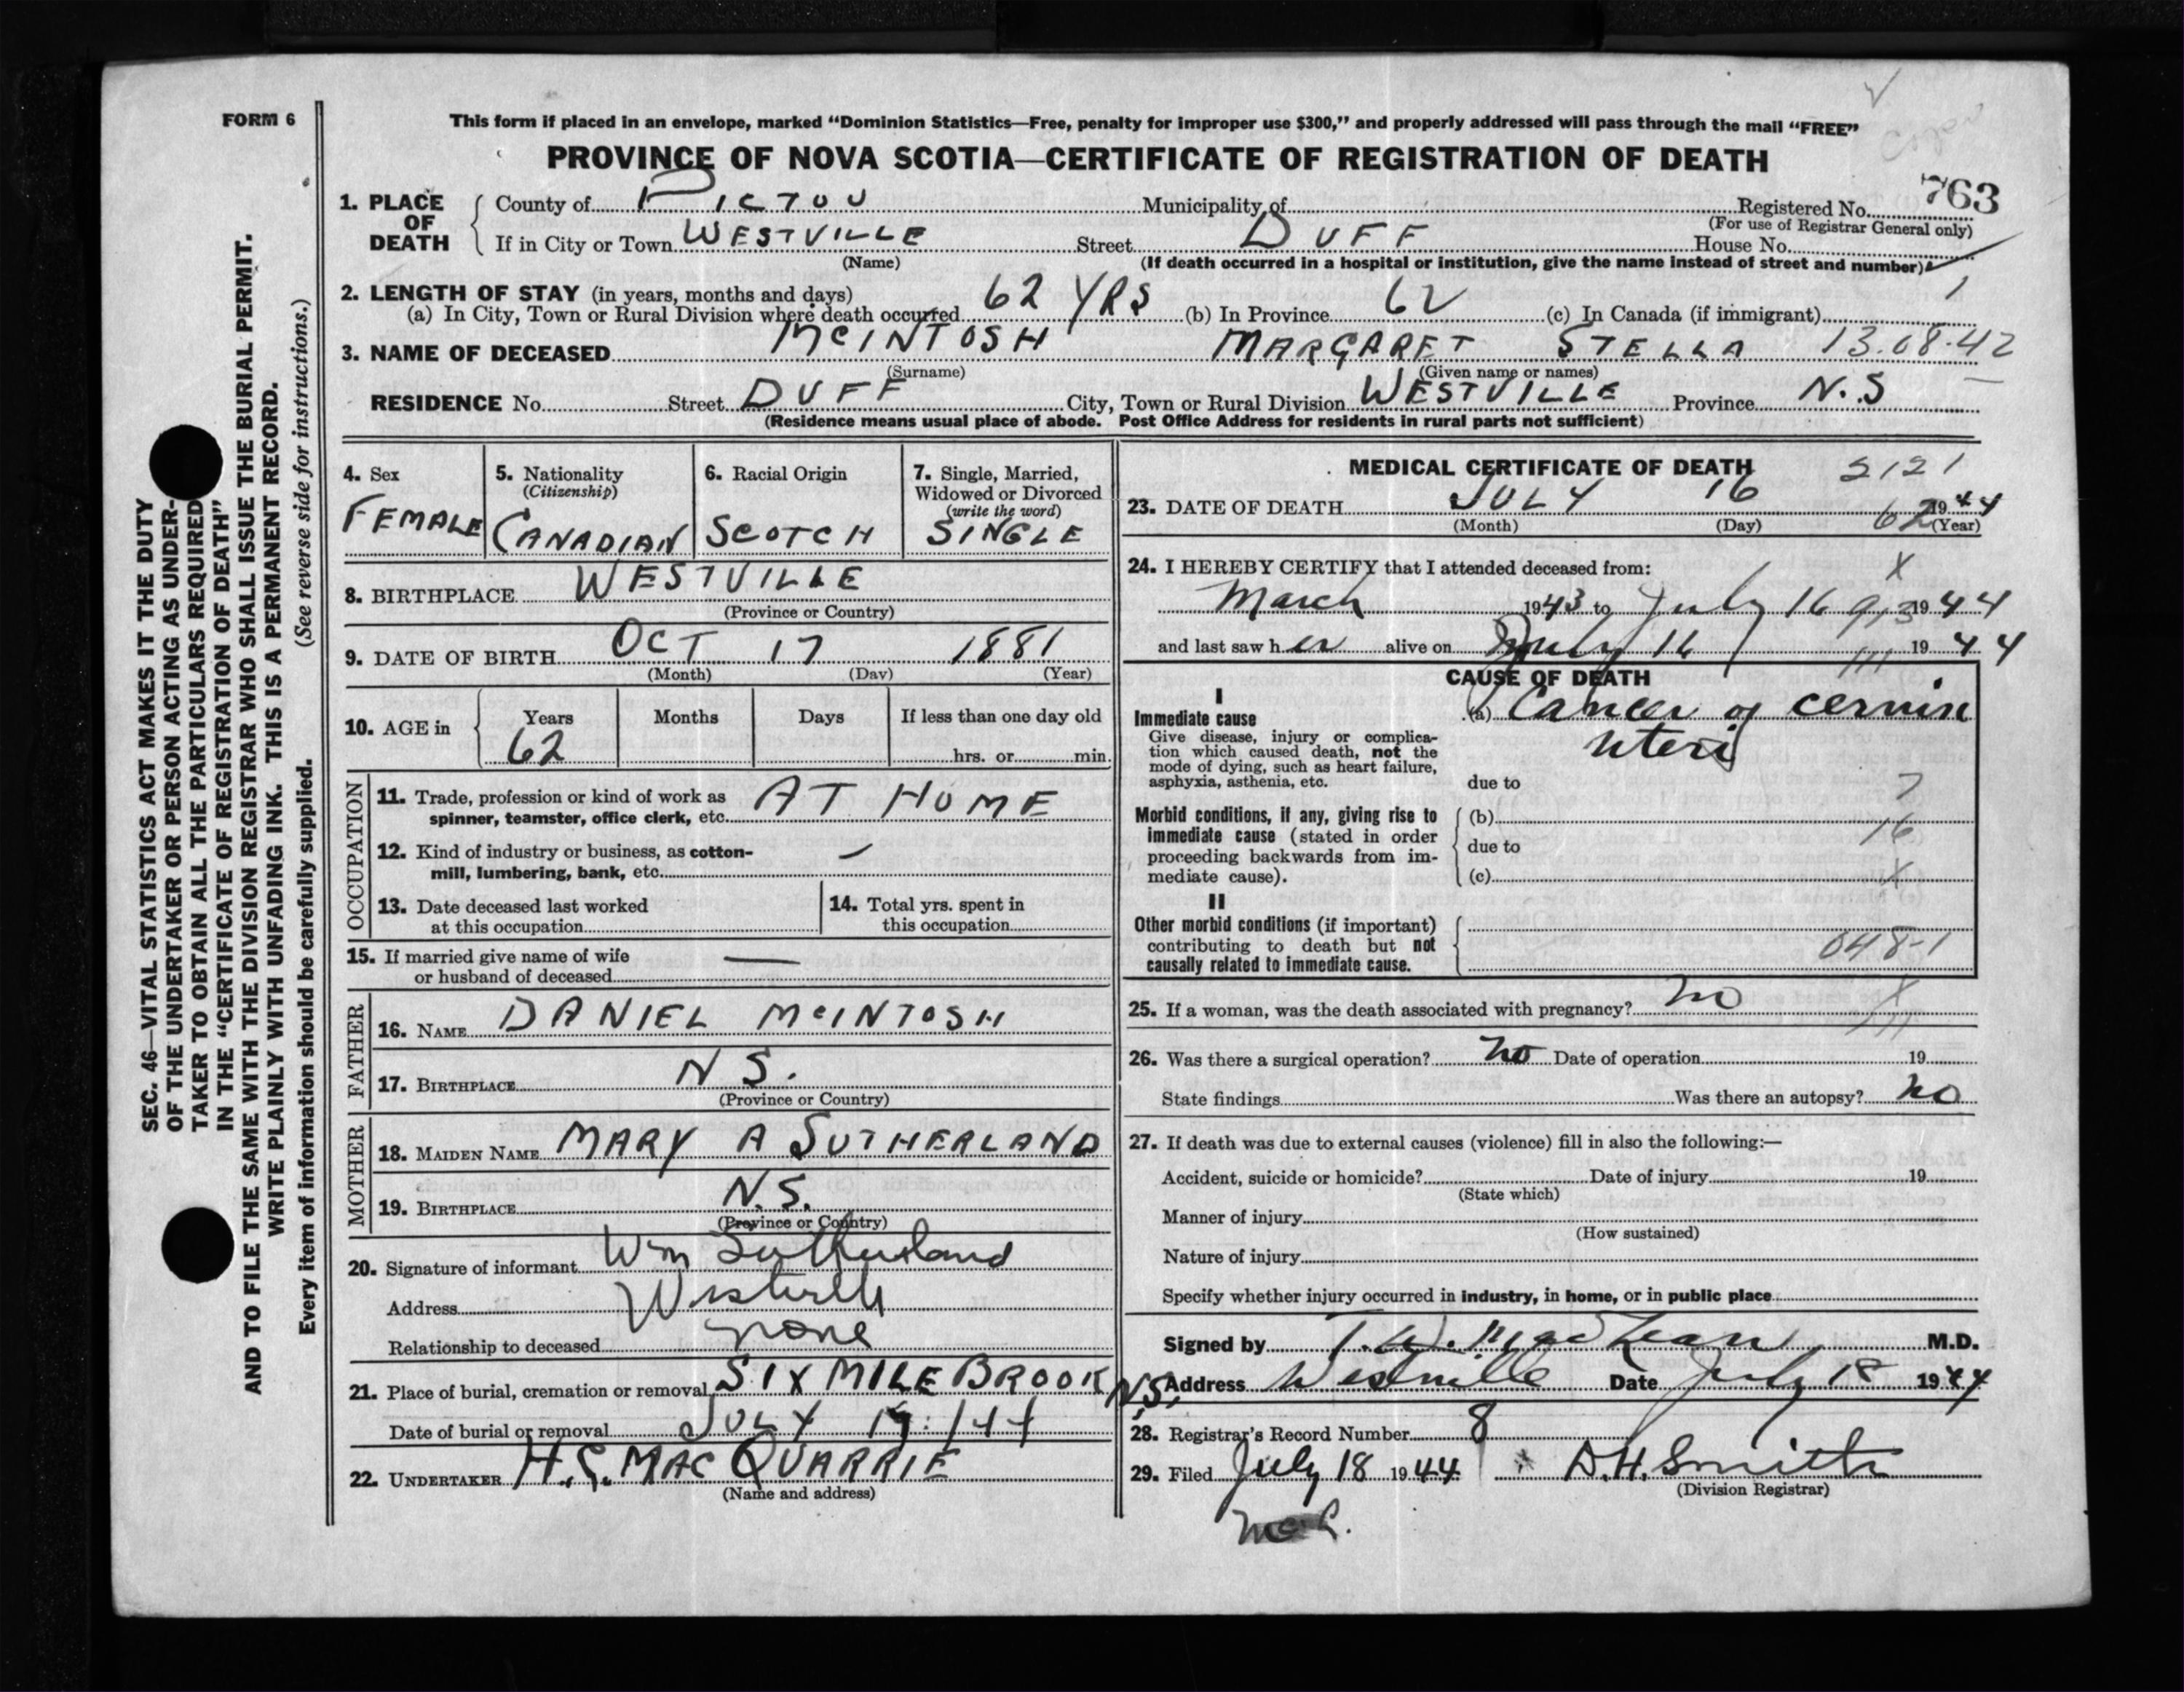 FORM 6
This form if placed in an envelope, marked “Dominion Statistics—Free, penalty for improper use $300,” and properly addressed will pass through the mail “FREE”
PROVINCE OF NOVA SCOTIA—CERTIFICATE OF REGISTRATION OF DEATH
763
1. PLACE OF DEATH County of PICTOU Municipality of Registered No.
(For use of Registrar General only)
If in City or Town WESTVILLE Street DUFF House No.
(Name) (If death occurred in a hospital or institution, give the name instead of street and number)
2. LENGTH OF STAY (in years, months and days) 1
(a) In City, Town or Rural Division where death occurred 62 YRS (b) In Province 62 (c) In Canada (if immigrant)
3. NAME OF DECEASED MCINTOSH MARGARET STELLA 13.08.42
(Surname) (Given name or names)
RESIDENCE No. Street DUFF City, Town or Rural Division WESTVILLE Province N.S
(Residence means usual place of abode. Post Office Address for residents in rural parts not sufficient)
4. Sex
FEMALE
5. Nationality
(Citizenship)
CANADIAN
6. Racial Origin
SCOTCH
7. Single, Married,
Widowed or Divorced
(write the word)
SINGLE
8. BIRTHPLACE WESTVILLE
(Province or Country)
9. DATE OF BIRTH OCT 17 1881
(Month) (Day) (Year)
10. AGE in Years Months Days If less than one day old
62 hrs. or min.
OCCUPATION
11. Trade, profession or kind of work as
spinner, teamster, office clerk, etc. AT HOME
12. Kind of industry or business, as cotton-
mill, lumbering, bank, etc. —
13. Date deceased last worked
at this occupation
14. Total yrs. spent in
this occupation
15. If married give name of wife
or husband of deceased —
FATHER
16. NAME DANIEL MCINTOSH
17. BIRTHPLACE N S.
(Province or Country)
MOTHER
18. MAIDEN NAME MARY A SUTHERLAND
19. BIRTHPLACE N.S.
(Province or Country)
20. Signature of informant Wm Sutherland
Address Westville
Relationship to deceased none
21. Place of burial, cremation or removal SIX MILE BROOK N.S.
Date of burial or removal JULY
22. UNDERTAKER H.G. MACQUARRIE
(Name and address)
MEDICAL CERTIFICATE OF DEATH 2121
23. DATE OF DEATH JULY 16 1944
(Month) (Day) (Year)
62
24. I HEREBY CERTIFY that I attended deceased from: X
March 1943 to July 16 1944
913
and last saw her alive on July 16 1944
111
CAUSE OF DEATH
I
Immediate cause
Give disease, injury or complica-
tion which caused death, not the
mode of dying, such as heart failure,
asphyxia, asthenia, etc.
(a) Cancer of cervix
uteri
due to 7
Morbid conditions, if any, giving rise to
immediate cause (stated in order
proceeding backwards from im-
mediate cause).
(b)
due to 16
(c) X
II
Other morbid conditions (if important)
contributing to death but not
causally related to immediate cause.
048-1
25. If a woman, was the death associated with pregnancy? no X
111
26. Was there a surgical operation? no Date of operation 19
State findings Was there an autopsy? no
27. If death was due to external causes (violence) fill in also the following:—
Accident, suicide or homicide? Date of injury 19
(State which)
Manner of injury
(How sustained)
Nature of injury
Specify whether injury occurred in industry, in home, or in public place
Signed by T.W. MacLean M.D.
Address Westville Date July 18 1944
28. Registrar’s Record Number 8
29. Filed July 18 1944 D.H. Smith
(Division Registrar)
SEC. 46—VITAL STATISTICS ACT MAKES IT THE DUTY
OF THE UNDERTAKER OR PERSON ACTING AS UNDER-
TAKER TO OBTAIN ALL THE PARTICULARS REQUIRED
IN THE “CERTIFICATE OF REGISTRATION OF DEATH”
AND TO FILE THE SAME WITH THE DIVISION REGISTRAR WHO SHALL ISSUE THE BURIAL PERMIT.
WRITE PLAINLY WITH UNFADING INK. THIS IS A PERMANENT RECORD.
Every item of information should be carefully supplied. (See reverse side for instructions.)